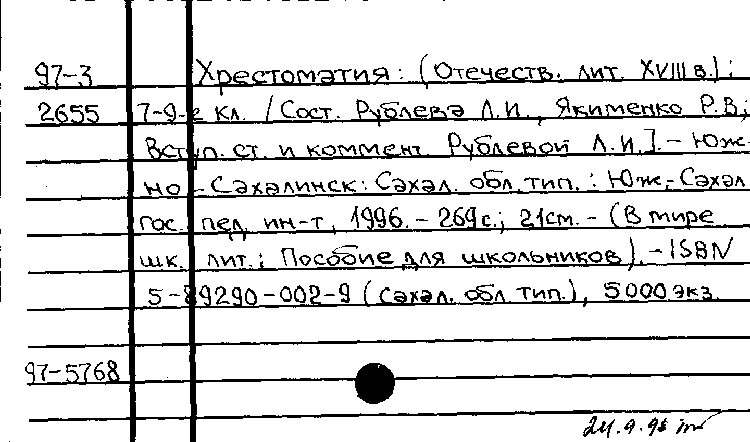 97-3 Хрестоматия: (Отечеств. лит. XVIII в.):
2655 7-9-е кл. / Сост. Рублева Л.И., Якименко Р.В;
Вступ. ст. и коммент. Рублевой Л.И.]. - Юж-
но-Сахалинск: Сахал. обл. тип.: Юж.-Сахал
гос. пед. ин-т, 1996. - 269 с.; 21 см. - (В мире
шк. лит.: Пособие для школьников). - ISBN
5-89290-002-9 (Сахал. обл. тип.), 5000 экз.
97-5768
24.9.98